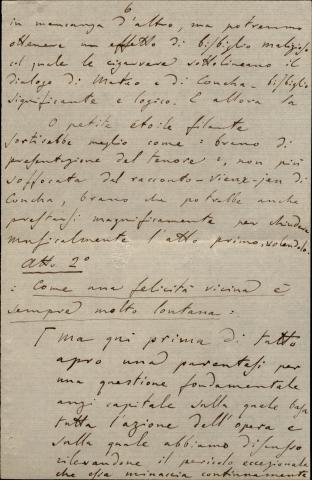 6
in mancanza d'altro, ma potremmo
ottenere un effetto di bisbiglio malizioso
col quale le cigarere sottolineano il
dialogo di Mateo e di Concha - bisbiglio
significante e logico. E allora la
O petite étoile filante
sortirebbe meglio come: brano di
presentazione del tenore e, non più
soffocata dal racconto - vieux-jeu di
Concha, brano che potrebbe anche
prestarsi magnificamente per chiudere
musicalmente l'atto primo, volendolo.
Atto 2º
: Come una felicità vicina è
sempre molto lontana :
[ ma qui prima di tutto
apro una parentesi per
una questione fondamentale
anzi capitale sulla quale basa
tutta l'azione dell'opera e
sulla quale abbiamo discusso
rilevandone il pericolo eccezionale
che essa minaccia continuamente